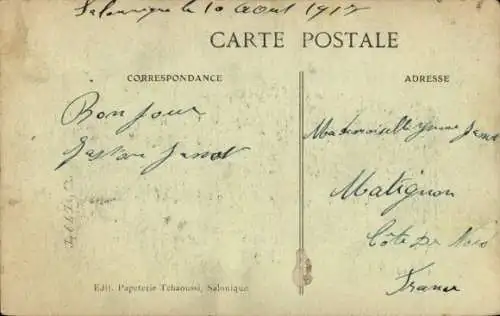 Salonique le 10 Aout 1917
CARTE POSTALE
CORRESPONDANCE
ADRESSE
Bonjour
Gaston Janot
Mademoiselle Yvonne Janot
Matignon
Côte du Nord
France
Edit. Papeterie Tchaoussi, Salonique